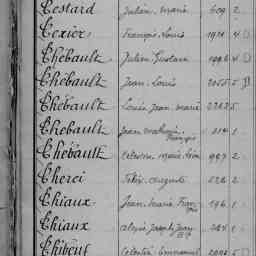 Testard Julien Marie 609 2
Texier François Louis 1921 4
Thébault Julien Gustave 4
Thébault Jean Louis 2055 5
Thébault Louis Jean Marie 5
Thébault Jean Mathurin François 1
Thébault Célestin Marie 997 2
Therei Auguste 2
Thiaux Jean Marie François 196 1
Thiaux Alexis Joseph Jean 1
Thibeuf Célestin Emmanuel 5